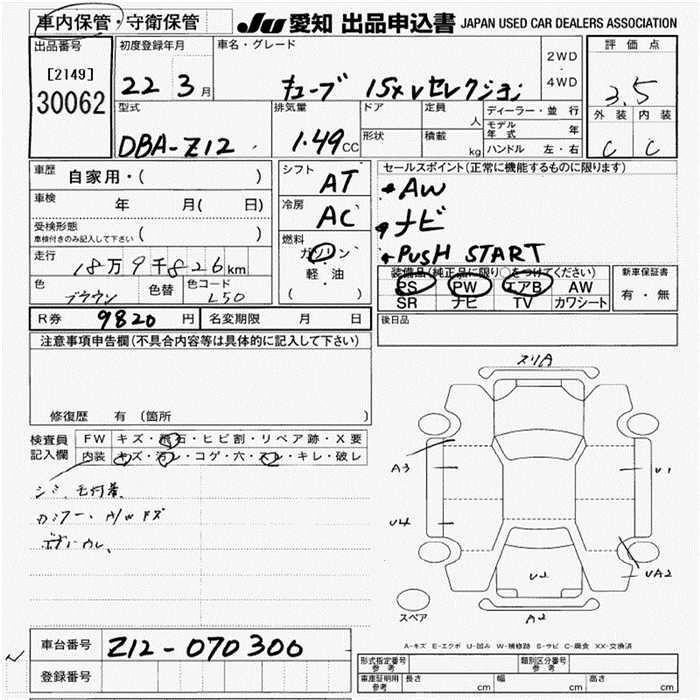 車内保管・守衛保管 JU 愛知 出品申込書 JAPAN USED CAR DEALERS ASSOCIATION
出品番号 初度登録年月 車名・グレード 2WD・4WD 評価点
[2149]
30062
22 3月 キューブ 15x Vセレクション 3.5
型式 排気量 ドア 定員 人 ディーラー・並行 外装 内装
モデル年式 年
DBA-Z12 1.49cc 形状 積載 kg ハンドル 左・右 C C
車歴 自家用・( ) シフト AT セールスポイント(正常に機能するものに限ります)
AW
車検 年 月( 日) 冷房 AC ナビ
受検形態 車検付きのみ記入して下さい ( ) 燃料 PUSH START
走行 18万9千826km ガソリン・軽油 ( ) 装備品(純正品に限り○をつけてください) 新車保証書
PS PW エアB AW 有・無
色 ブラウン 色替 色コード L50 SR ナビ TV カワシート
R券 9820円 名変期限 月 日 後日品
注意事項申告欄(不具合内容等は具体的に記入して下さい)
修復歴 有 (箇所 )
検査員記入欄 FW キズ・飛石・ヒビ割・リペア跡・X要
内装 キズ・汚レ・コゲ・穴・スレ・キレ・破レ
シミ、毛付着
スリA
A3
U1
U4
UA2
U2
A2
スペア
A-キズ E-エクボ U-凹み W-補修跡 S-サビ C-腐食 XX-交換済
車台番号 Z12-070300
登録番号
形式指定番号 参考 類別区分番号 参考
車庫証明用 参考 長さ cm 幅 cm 高さ cm